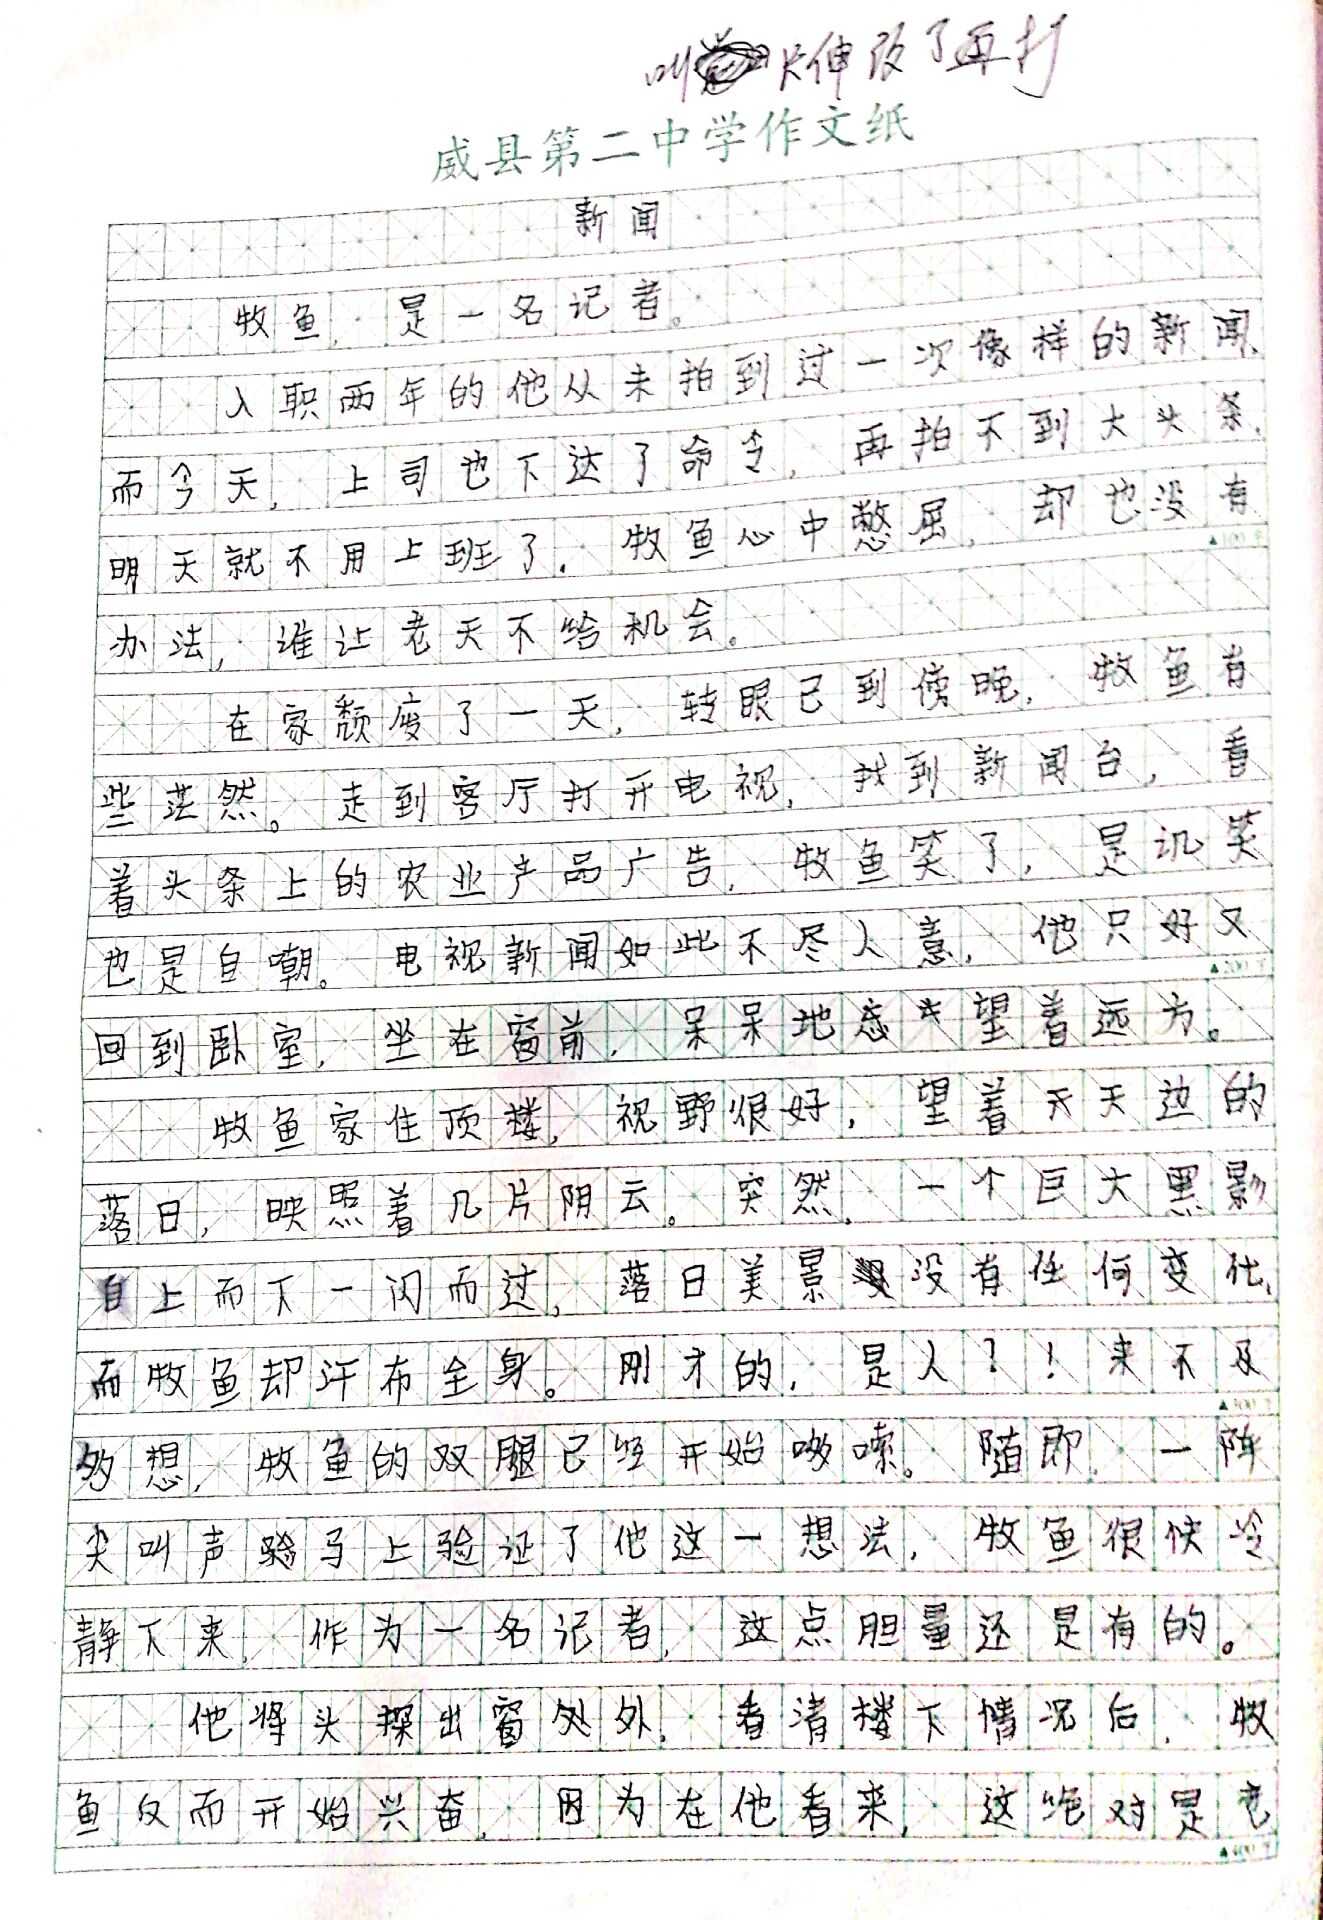 叫 伸改了再打
威县第二中学作文纸
新闻
牧鱼，是一名记者。
入职两年的他从未拍到过一次像样的新闻，
而今天，上司也下达了命令，再拍不到大头条，
明天就不用上班了。牧鱼心中憋屈，却也没有
▲100字
办法，谁让老天不给机会。
在家颓废了一天，转眼已到傍晚，牧鱼有
些茫然。走到客厅打开电视，找到新闻台，看
着头条上的农业产品广告，牧鱼笑了，是讥笑
也是自嘲。电视新闻如此不尽人意，他只好又
▲200字
回到卧室，坐在窗前，呆呆地望着远方。
牧鱼家住顶楼，视野很好，望着天天边的
落日，映照着几片阴云。突然，一个巨大黑影
自上而下一闪而过，落日美景没有任何变化，
而牧鱼却汗布全身。刚才的，是人？！来不及
▲300字
多想，牧鱼的双腿已经开始哆嗦。随即，一阵
尖叫声马上验证了他这一想法，牧鱼很快冷
静下来，作为一名记者，这点胆量还是有的。
他将头探出窗外，看清楼下情况后，牧
鱼反而开始兴奋，因为在他看来，这绝对是老
▲400字